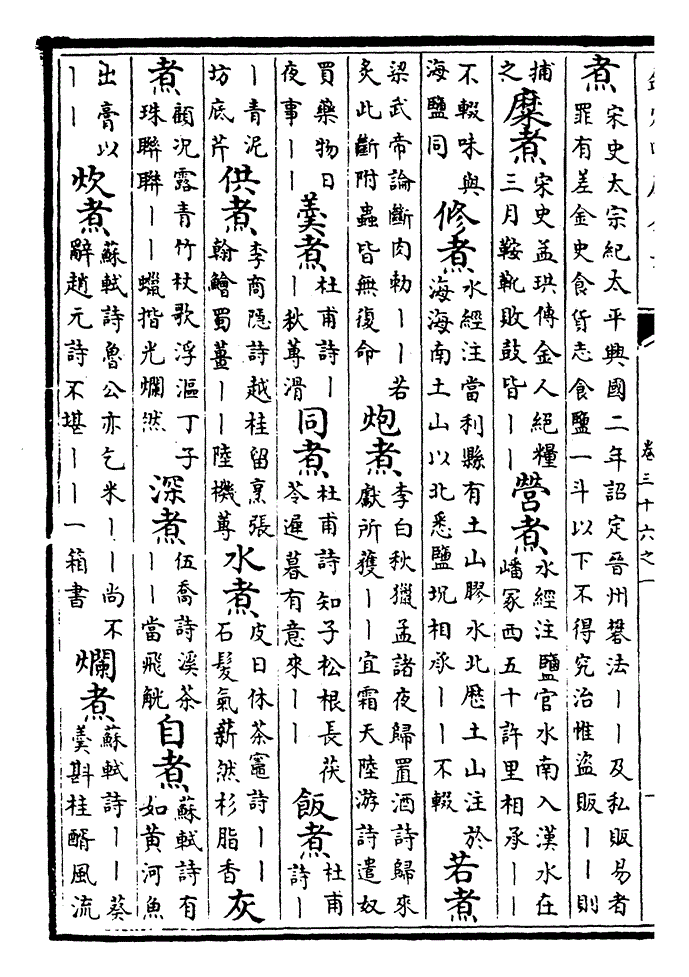 卷三十六之一
一
煮
宋史太宗紀太平興國二年詔定晉州礬法丨丨及私販易者
罪有差金史食貨志食鹽一斗以下不得究治惟盜販丨丨則
捕
之
糜煮
宋史孟珙傳金人絕糧
三月鞍靴敗鼓皆丨丨
營煮
水經注鹽官水南入漢水在
嶓冢西五十許里相承丨丨
不輟味與
海鹽同
修煮
水經注當利縣有土山膠水北歷土山注於
海海南土山以北悉鹽坑相承丨丨不輟
若煮
梁武帝論斷肉勅丨丨若
炙此斷附蟲皆無復命
炮煮
李白秋獵孟諸夜歸置酒詩歸來
獻所獲丨丨宜霜天陸游詩遣奴
買藥物日
夜事丨丨
羹煮
杜甫詩丨
丨秋蓴滑
同煮
杜甫詩知子松根長茯
苓遲暮有意來丨丨
飯煮
杜甫
詩丨
丨青泥
坊底芹
供煮
李商隱詩越桂留烹張
翰鱠蜀薑丨丨陸機蓴
水煮
皮日休茶竈詩丨丨
石髮氣薪然杉脂香
灰
煮
顧況露青竹杖歌浮漚丁子
珠聯聯丨丨蠟揩光爛然
深煮
伍喬詩溪茶
丨丨當飛觥
自煮
蘇軾詩有
如黃河魚
出膏以
丨丨
炊煮
蘇軾詩魯公亦乞米丨丨尚不
辭趙元詩不堪丨丨一箱書
爛煮
蘇軾詩丨丨葵
羹斟桂醑風流